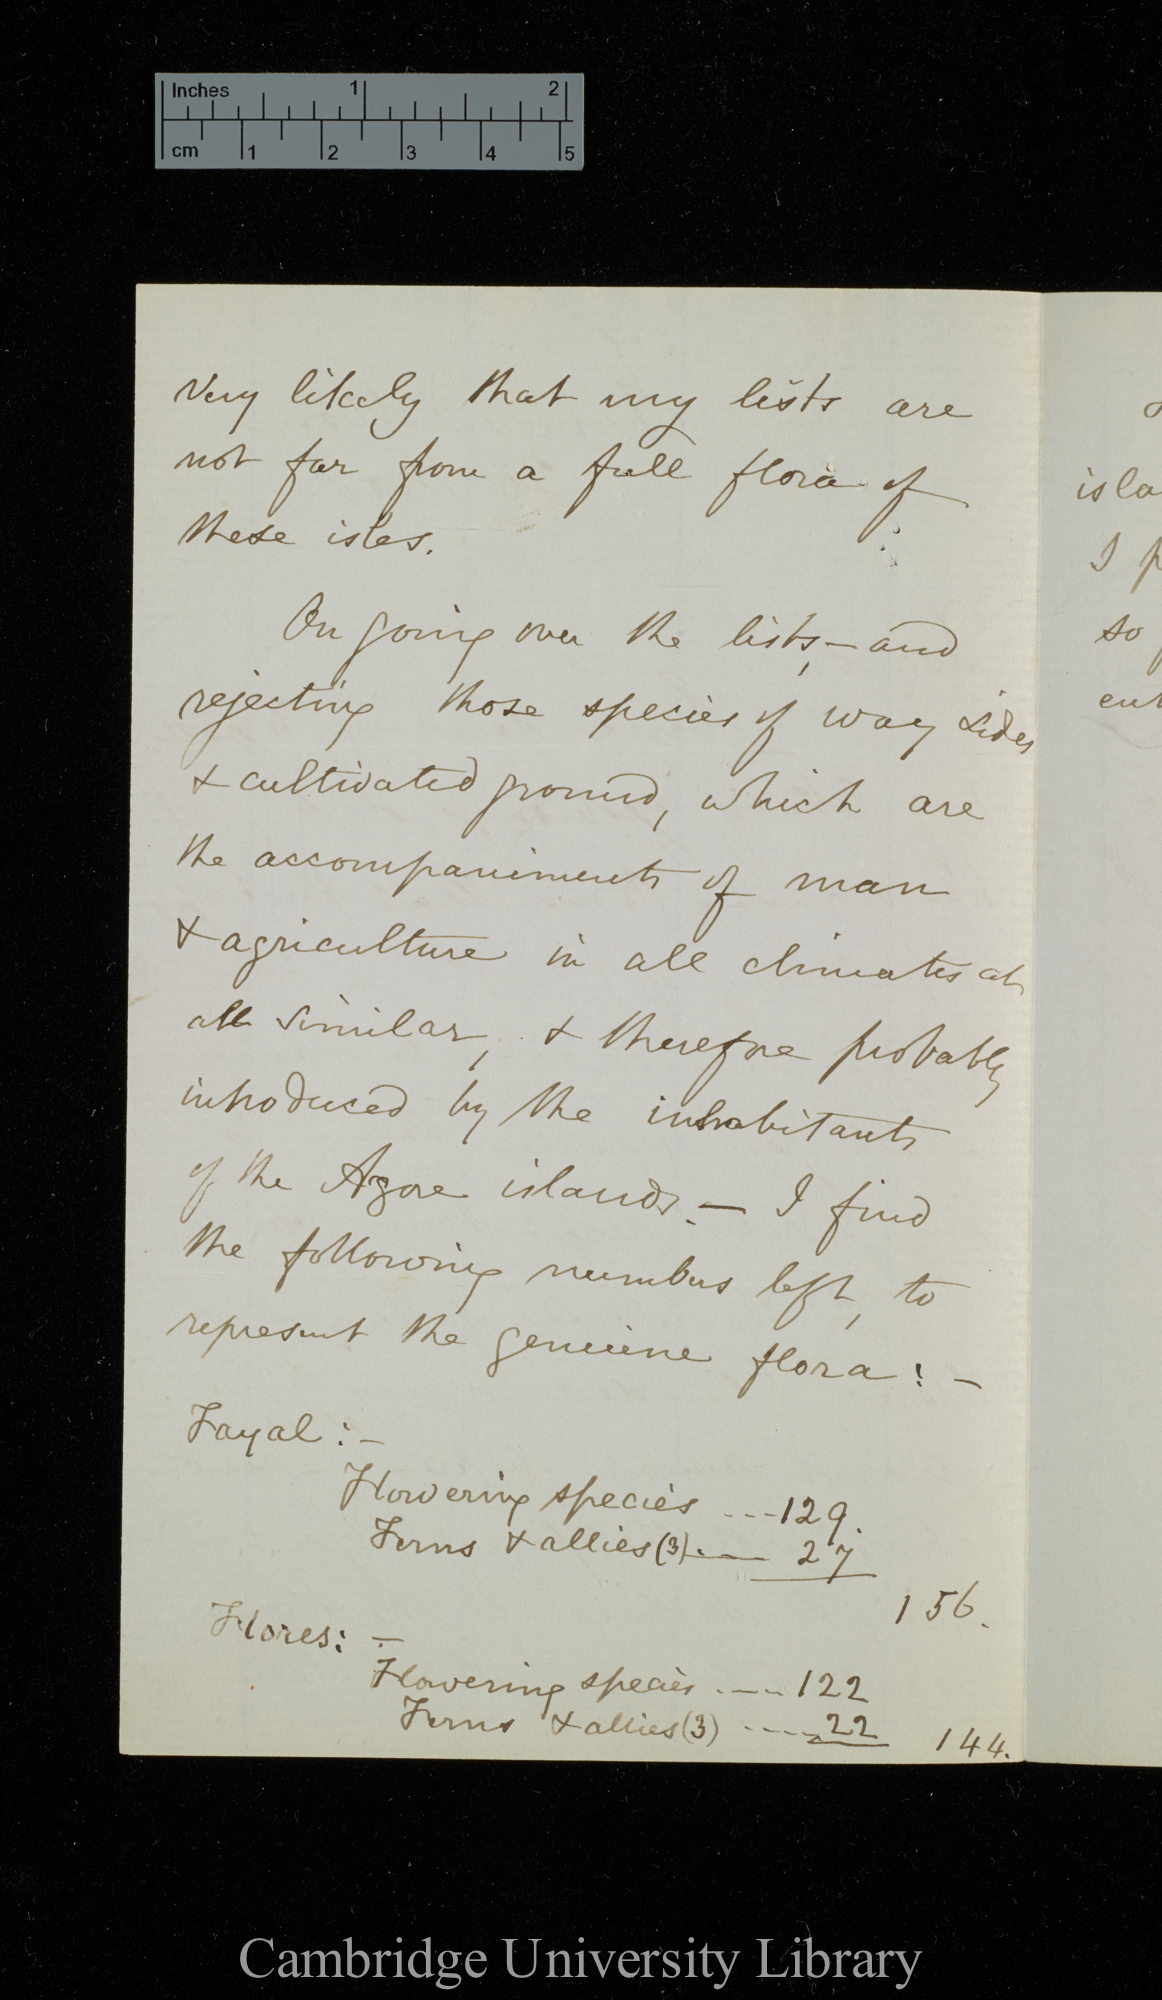 Inches 1 2
cm 1 2 3 4 5
very likely that my lists are
not far from a full flora of
these isles.
On going over the lists, — and
rejecting those species of way sides
& cultivated ground, which are
the accompaniments of man
& agriculture in all climates at
all similar, & therefore probably
introduced by the inhabitants
of the Azore islands. — I find
the following numbers left, to
represent the genuine flora: —
Fayal: —
Flowering species --- 129.
Ferns & allies (3) .—— 27
156.
Flores: —
Flowering species .—-- 122
Ferns & allies (3) ----- 22 144.
isla
I p
so
ent
Cambridge University Library